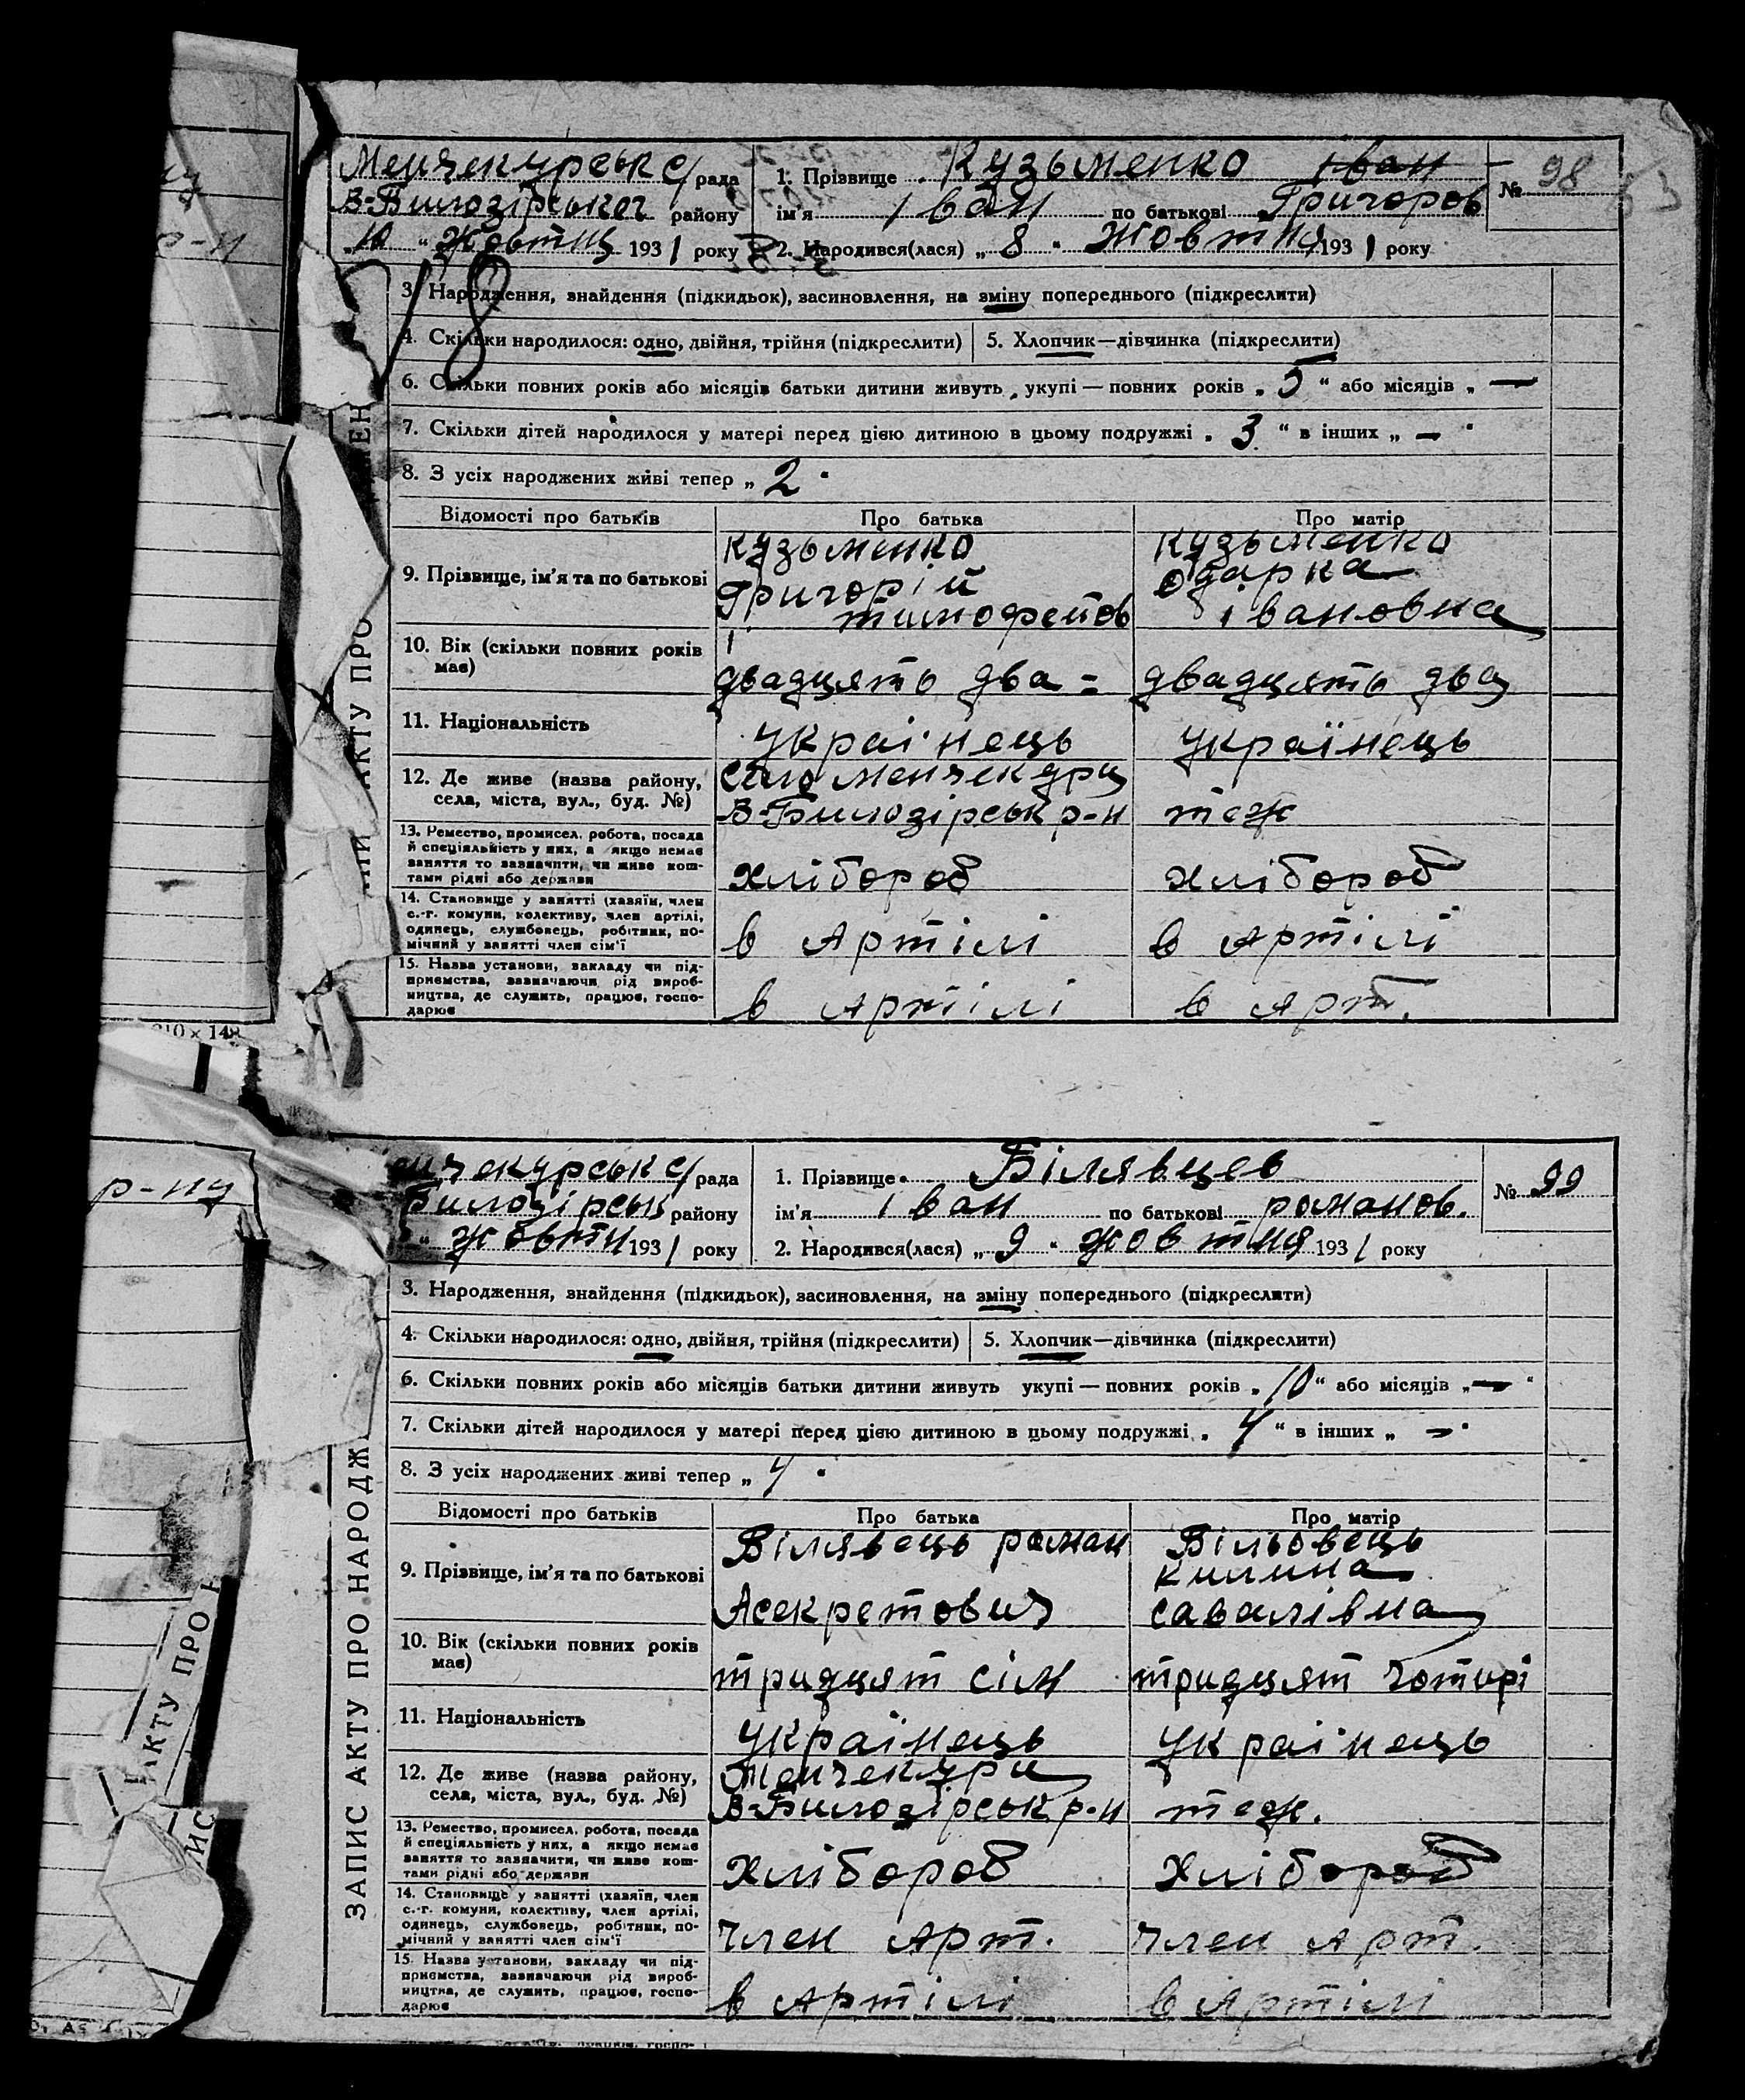 Менчекурськ с/рада
В-Билозірськог району
„10“ Жовтня 1931 року
1. Прізвище Кузьменко Іван
ім'я Іван по батькові Григоров
2. Народився(лася) „8“ Жовтня 1931 року
№ 98
53
18
3. Народження, знайдення (підкидьок), засиновлення, на зміну попереднього (підкреслити)
4. Скільки народилося: одно, двійня, трійня (підкреслити) 5. Хлопчик—дівчинка (підкреслити)
6. Скільки повних років або місяців батьки дитини живуть укупі — повних років „5“ або місяців „—
7. Скільки дітей народилося у матері перед цією дитиною в цьому подружжі „3“ в інших „—“
8. З усіх народжених живі тепер „2“
Відомості про батьків Про батька Про матір
9. Прізвище, ім'я та по батькові
Кузьменко Григорій тимофеїов
Кузьменко Одарка івановна
10. Вік (скільки повних років має)
двадцять два =
двадцять два
11. Національність
Украінець
Українець
12. Де живе (назва району, села, міста, вул., буд. №)
Село Менчекури
В-Билозірськ р-н
теж
13. Ремество, промисел, робота, посада
й спеціяльність у них, а якщо немає
заняття то зазначити, чи живе кош-
тами рідні або держави
хлібороб
хлібороб
14. Становище у занятті (хазяїн, член
с.-г. комуни, колективу, член артілі,
одинець, службовець, робітник, по-
мічний у занятті член сім'ї
в Артілі
в Артілі
15. Назва установи, закладу чи під-
приємства, зазначаючи рід вироб-
ництва, де служить, працює, госпо-
дарює
в Артілі
в Арт.
210 × 148
р-ну
енчекурськ с/рада
Билозірськ району
“ жовтн 1931 року
1. Прізвище Білявцев
ім'я Іван по батькові романов.
2. Народився(лася) „9“ жовтня 1931 року
№ 99
3. Народження, знайдення (підкидьок), засиновлення, на зміну попереднього (підкреслити)
4. Скільки народилося: одно, двійня, трійня (підкреслити) 5. Хлопчик—дівчинка (підкреслити)
6. Скільки повних років або місяців батьки дитини живуть укупі — повних років „10“ або місяців „—“
7. Скільки дітей народилося у матері перед цією дитиною в цьому подружжі „4“ в інших „—“
8. З усіх народжених живі тепер „4“
Відомості про батьків Про батька Про матір
9. Прізвище, ім'я та по батькові
Білявець роман
Асекретович
Більовець
килина
савелівна
10. Вік (скільки повних років має)
тридцят сім
тридцят чотирі
11. Національність
Украінець
Украінець
12. Де живе (назва району, села, міста, вул., буд. №)
Менчекури
В-Билозірськ р-н
теж.
13. Ремество, промисел, робота, посада
й спеціяльність у них, а якщо немає
заняття то зазначити, чи живе кош-
тами рідні або держави
хлібороб
хлібороб
14. Становище у занятті (хазяїн, член
с.-г. комуни, колективу, член артілі,
одинець, службовець, робітник, по-
мічний у занятті член сім'ї
член Арт.
член Арт.
15. Назва установи, закладу чи під-
приємства, зазначаючи рід вироб-
ництва, де служить, працює, госпо-
дарює
в Артілі
в Артілі
ЗАПИС АКТУ ПРО НАРОДЖ
АКТУ ПРО Н